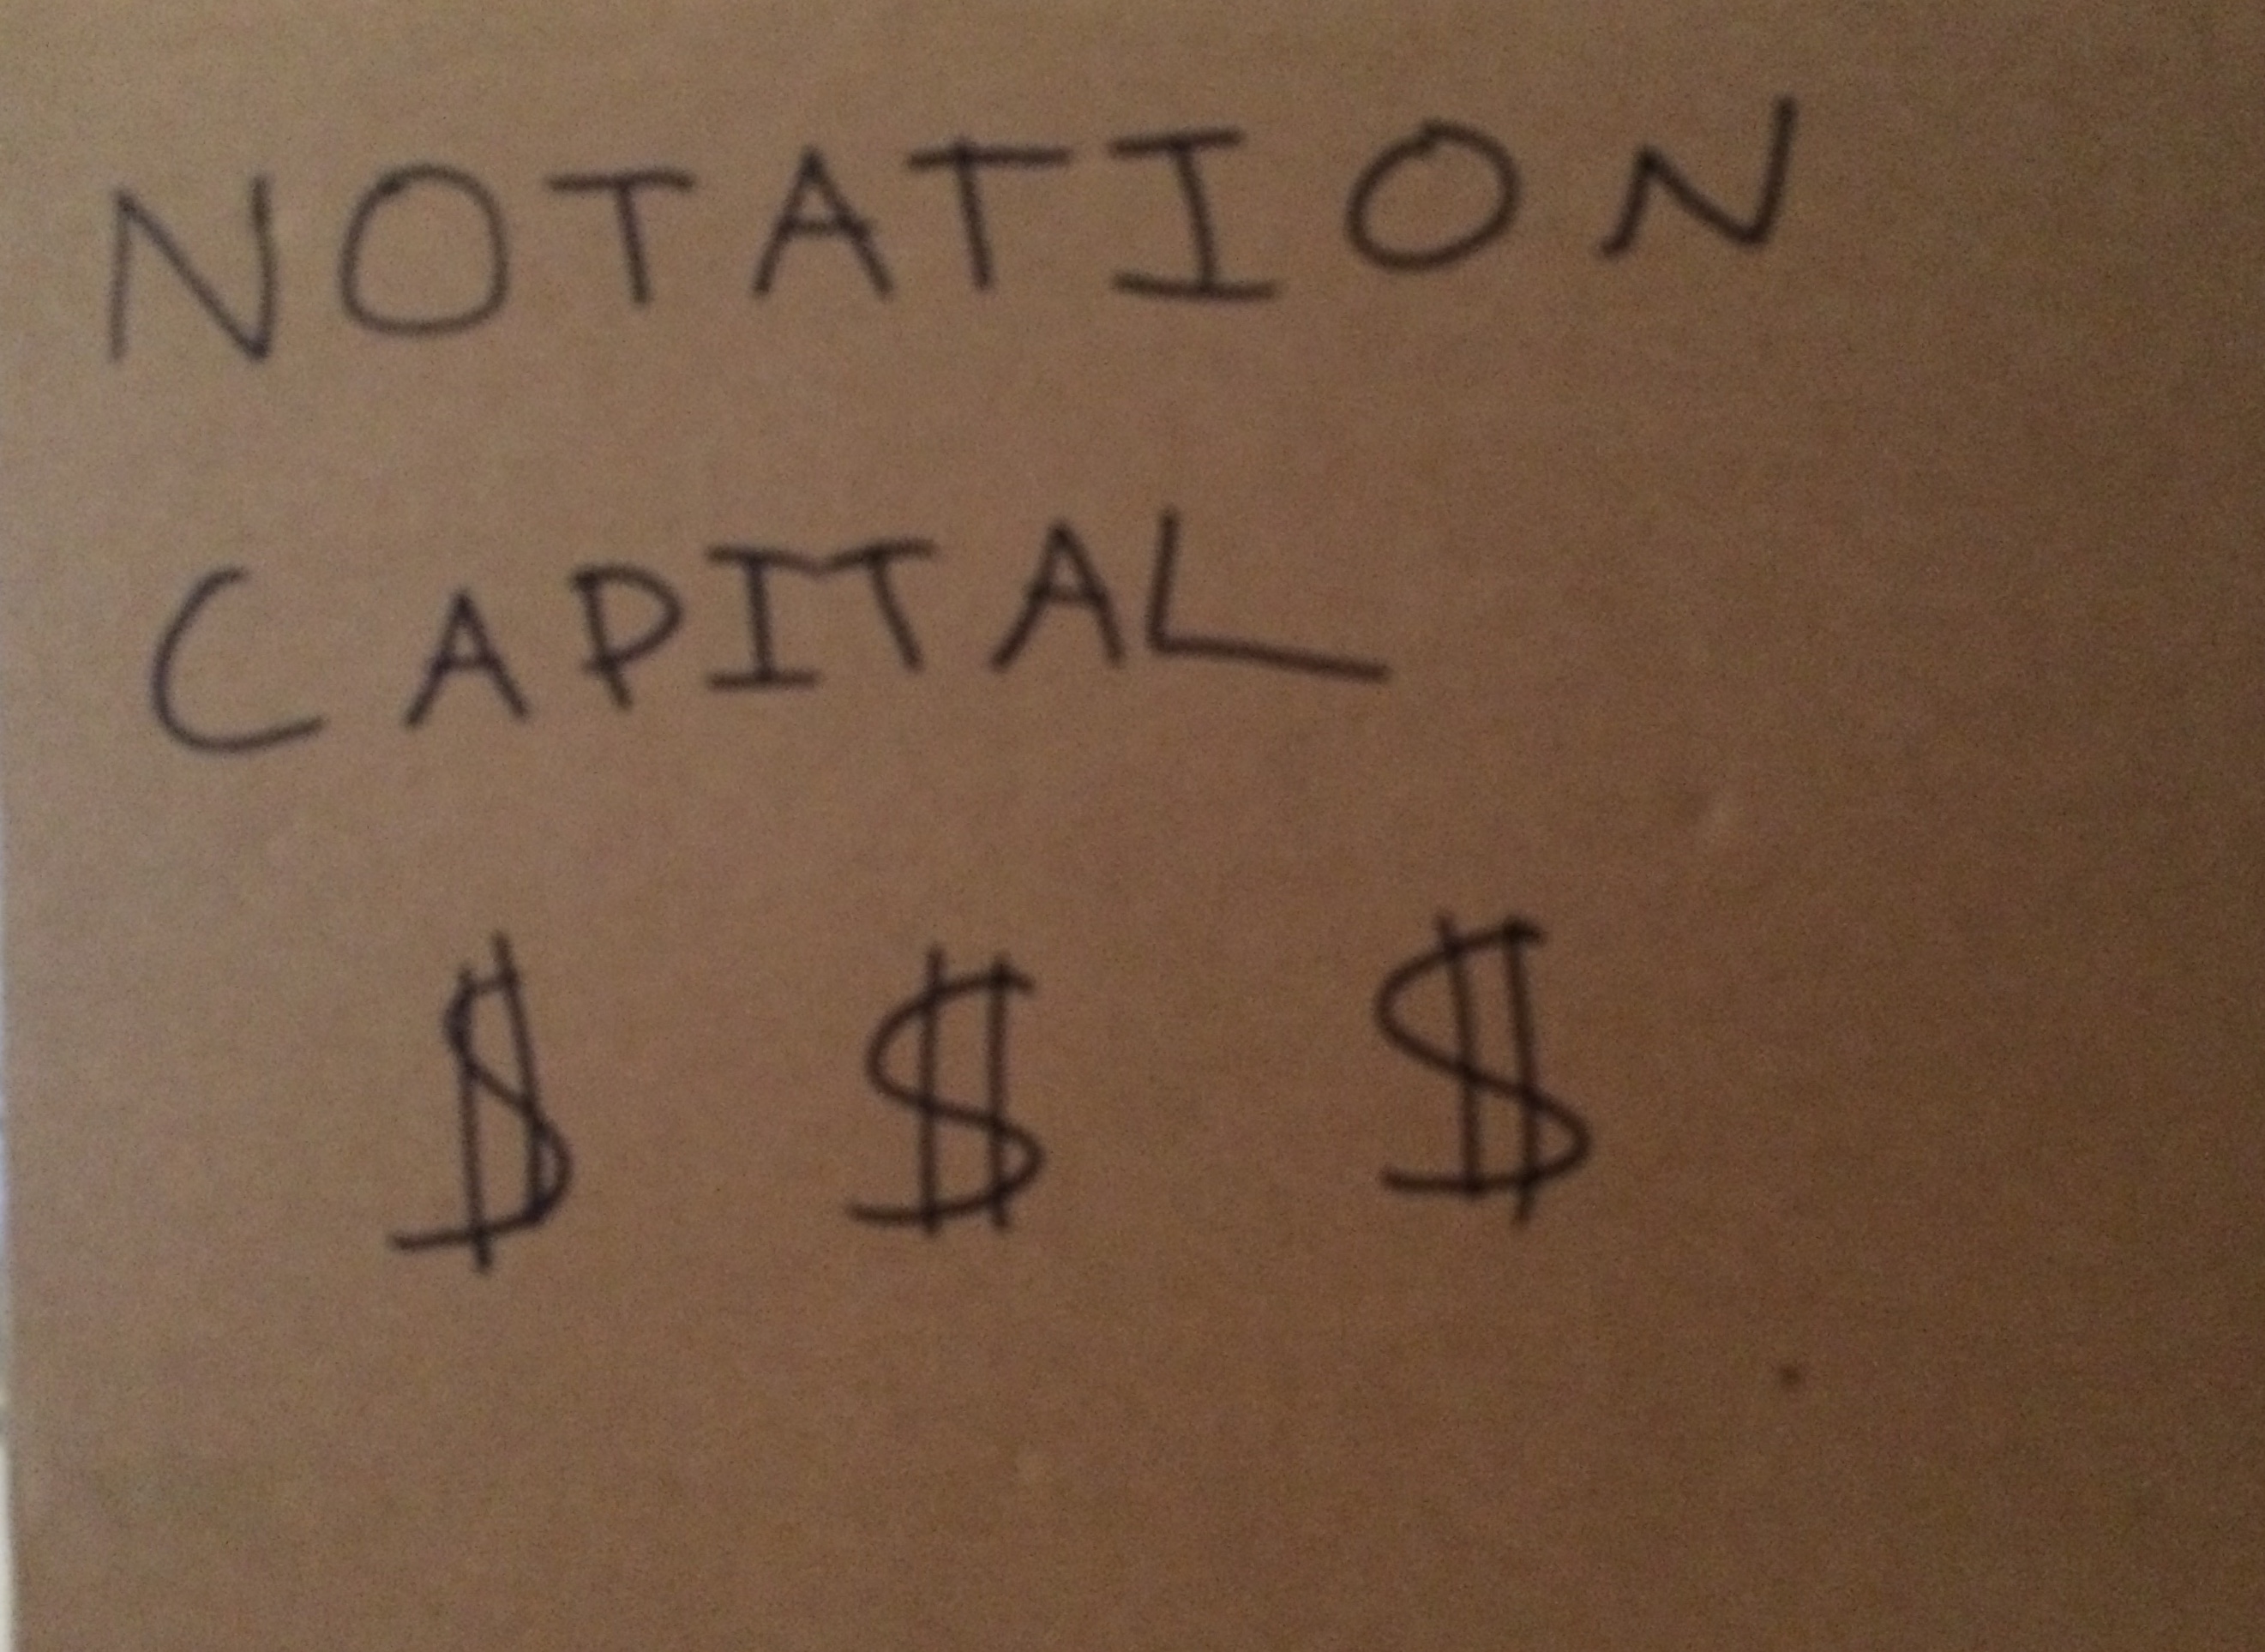 NOTATION
CAPITAL
$ $ $